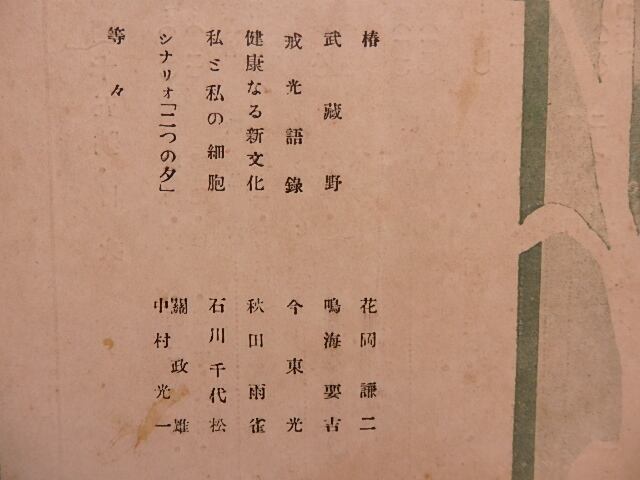 椿 花岡謙二
武藏野 鳴海要吉
戒光語錄 今東光
健康なる新文化 秋田雨雀
私と私の細胞 石川千代松
シナリオ「二つの夕」 關政雄 中村光一
等々